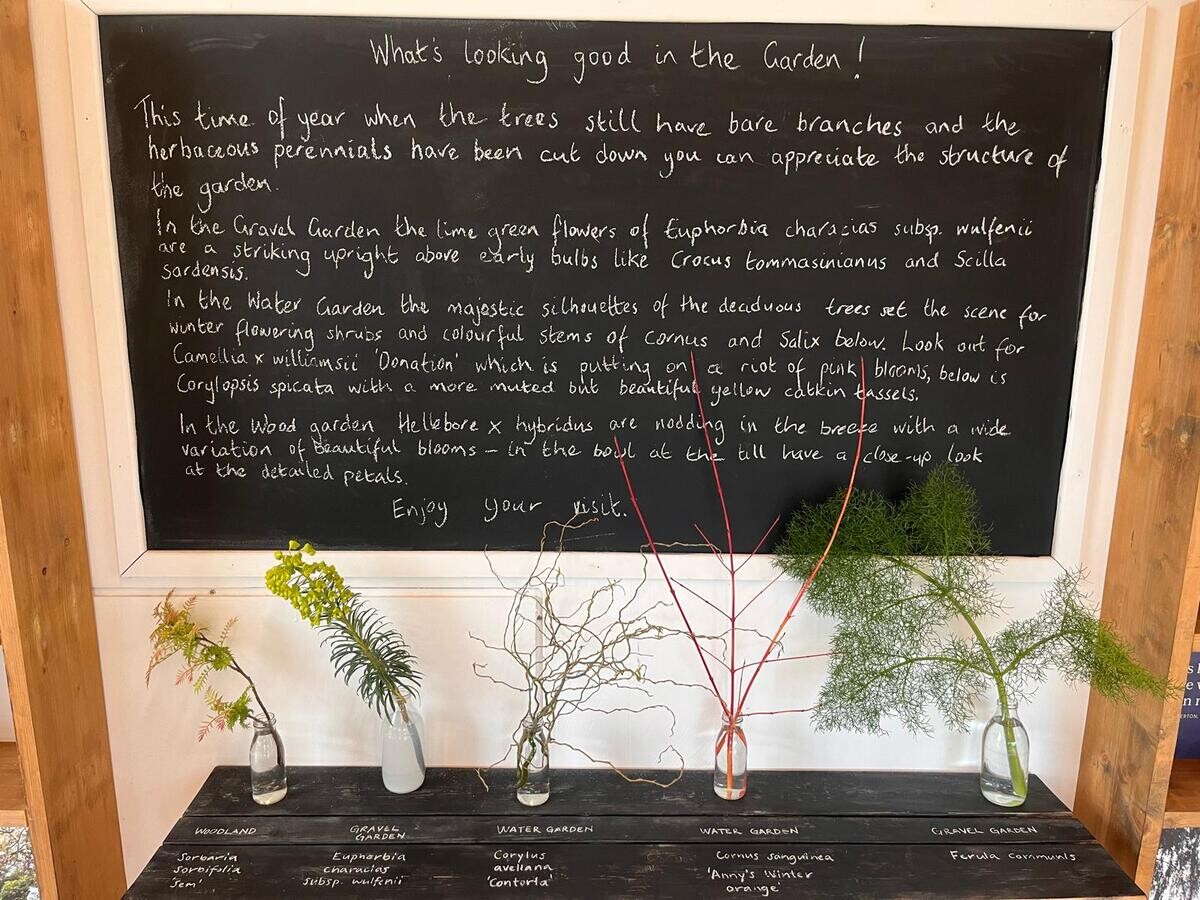 What's looking good in the Garden!
This time of year when the trees still have bare branches and the
herbaceous perennials have been cut down you can appreciate the structure of
the garden.
In the Gravel Garden the lime green flowers of Euphorbia characias subsp. wulfenii
are a striking upright above early bulbs like Crocus tommasinianus and Scilla
sardensis.
In the Water Garden the majestic silhouettes of the deciduous trees set the scene for
winter flowering shrubs and colourful stems of Cornus and Salix below. Look out for
Camellia x williamsii 'Donation' which is putting on a riot of pink blooms, below is
Corylopsis spicata with a more muted but beautiful yellow catkin tassels.
In the Wood garden Hellebore x hybridus are nodding in the breeze with a wide
variation of beautiful blooms – in the bowl at the till have a close-up look
at the detailed petals.
Enjoy your visit.
WOODLAND
Sorbaria
sorbifolia
'Sem'
GRAVEL
GARDEN
Euphorbia
characias
subsp. wulfenii
WATER GARDEN
Corylus
avellana
'Contorta'
WATER GARDEN
Cornus sanguinea
'Anny's Winter
orange'
GRAVEL GARDEN
Ferula communis